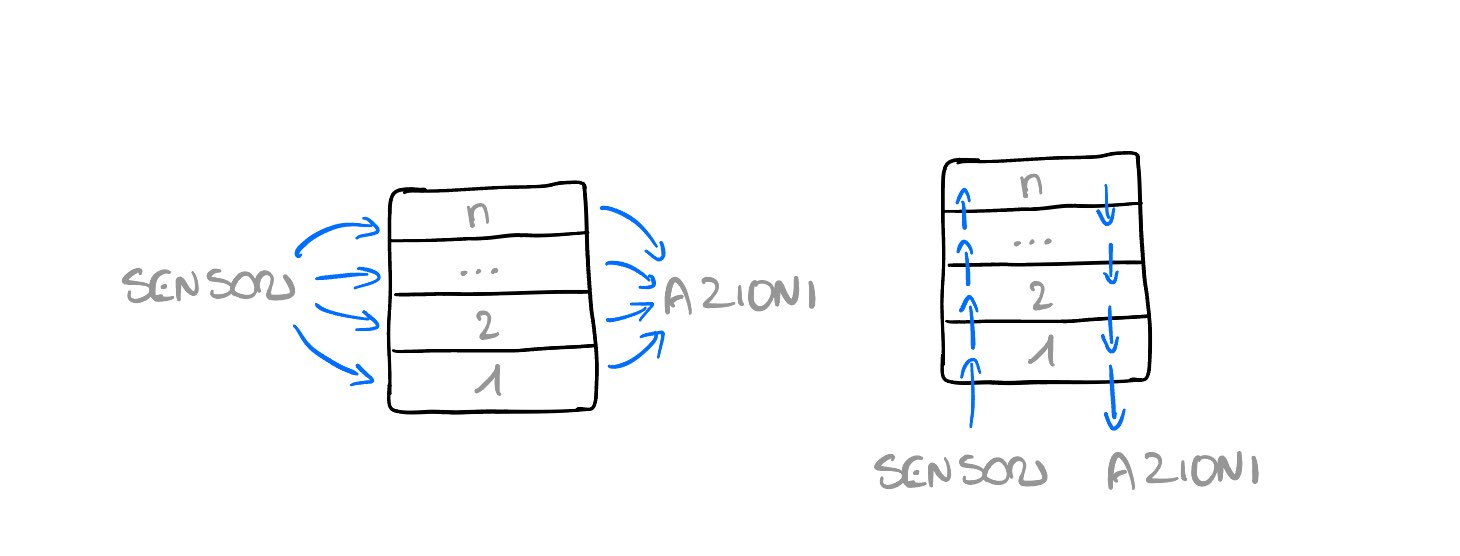 n
...
SENSORI
2
AZIONI
1
n
...
2
1
SENSORI AZIONI